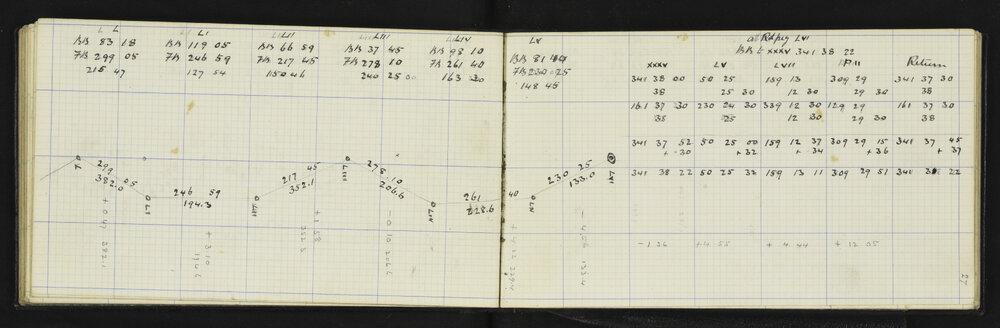 L LI LII LIII LIV
BB 83 18 BB 119 05 BB 66 59 BB 37 45 BB 98 10
FB 299 05 FB 246 59 FB 217 45 FB 278 10 FB 261 40
215 47 127 54 150 46 240 25 00 163 30
LV
BB 81
FB 230 25
148 45
at Rd peg LVI
BB to XXXV 341 38 22
XXXV LV LVII Return
341 38 00 50 25 159 13 309 29 341 37 30
38 25 30 12 30 29 30 38
161 37 30 230 24 30 339 12 30 129 29 161 37 30
38 25 12 30 29 30 38
341 37 52 50 25 00 159 12 37 309 29 15 341 37 45
+ 30 + 32 + 34 + 36 + 37
341 38 22 50 25 32 159 13 11 309 29 51 341 38 22
- 1 36 + 4.55 + 4.44 + 12 05
L
299 05
382.0
LI
246 59
194.3
LII
217 45
352.1
LIII
278 10
206.6
LIV
261 40
228.6
LV
230 25
133.0
LVI
+ 0.47 382.1
+ 3.10
+ 1.58
352.5
- 0.10 206.6
27